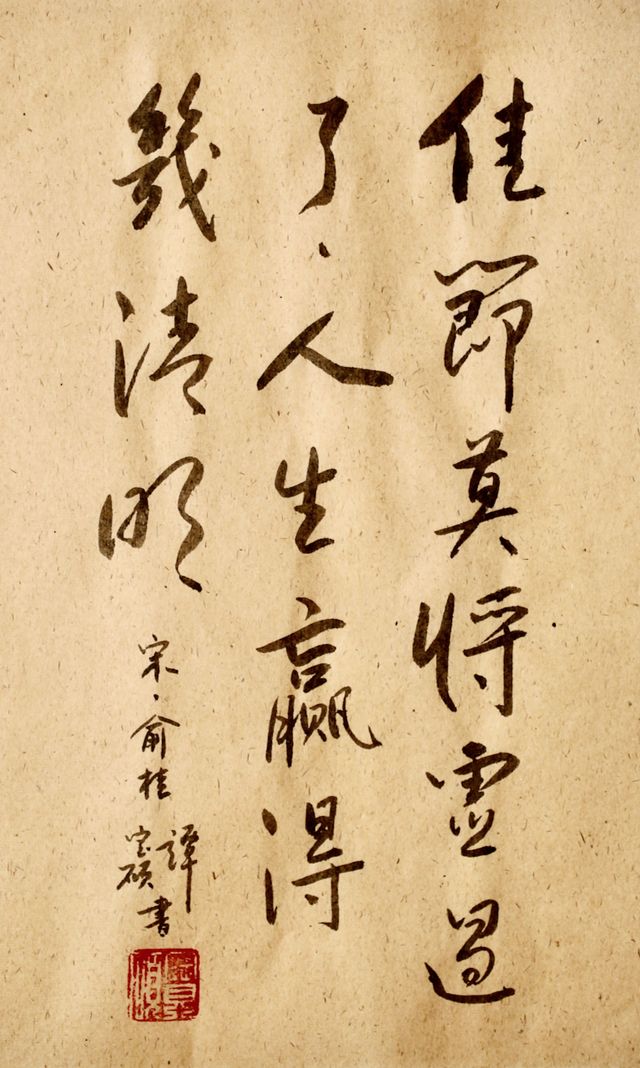 佳節莫将虛過
了、人生贏得
幾清明
宋、俞桂
譚宝硕書